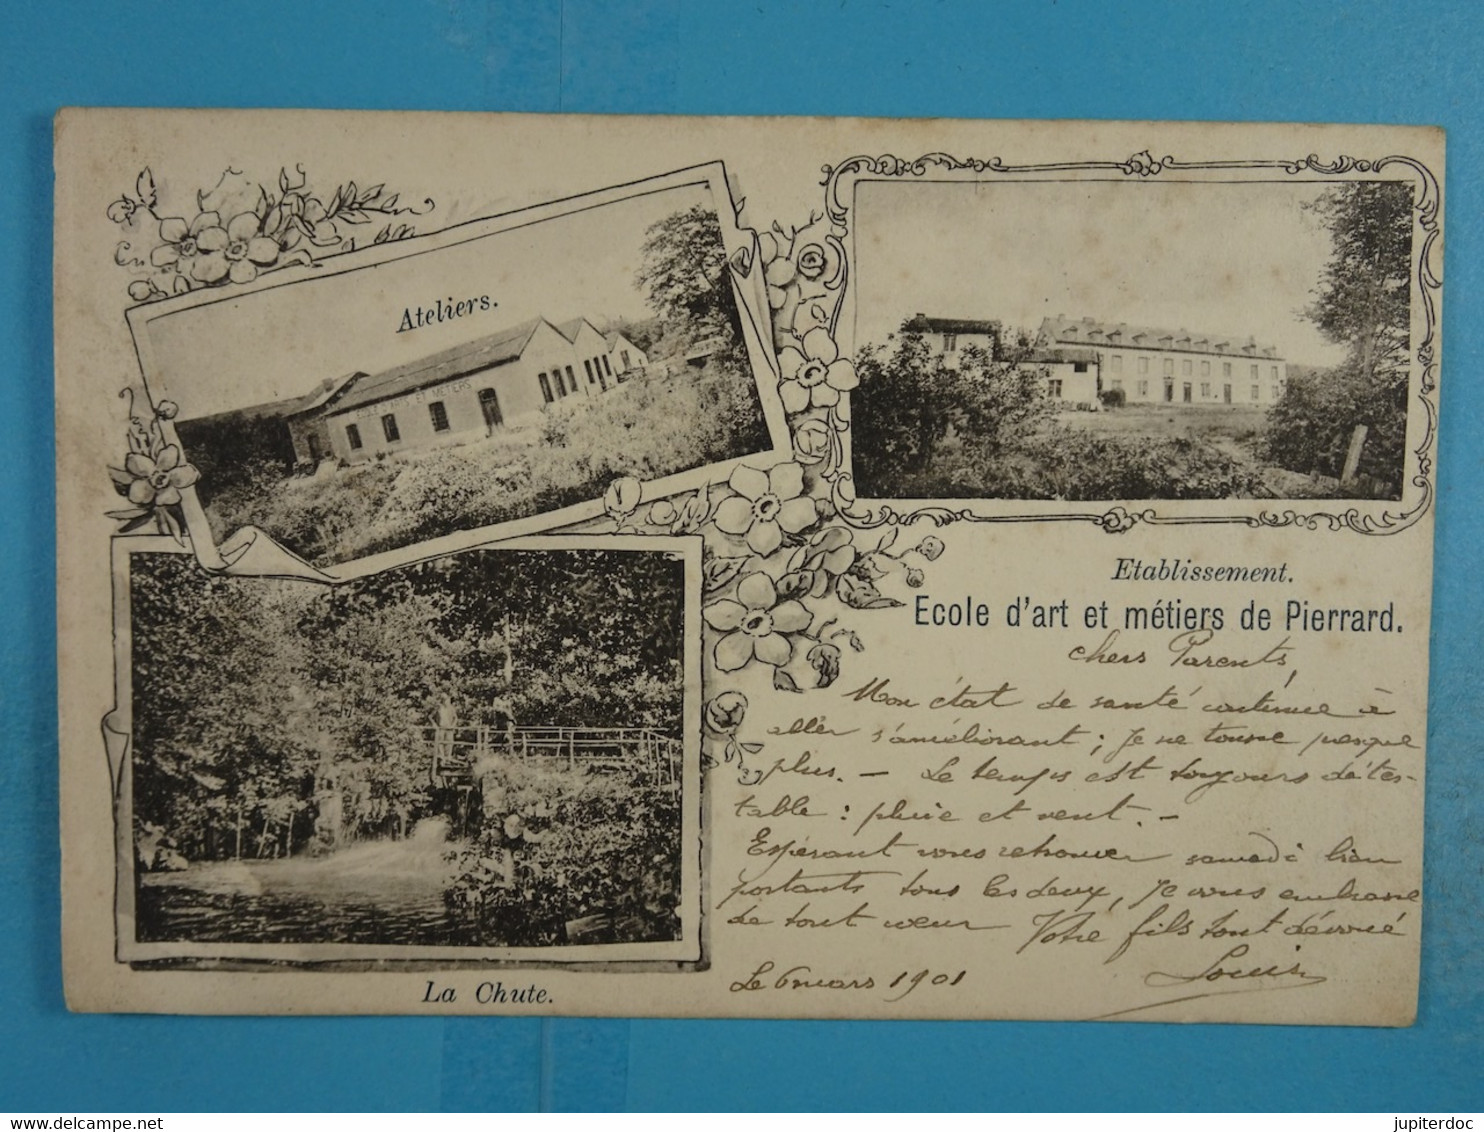 Ateliers.
Etablissement.
Ecole d'art et métiers de Pierrard.
chers Parents,
Mon état de santé continue à
aller s'améliorant ; je ne tousse presque
plus. — Le temps est toujours détes-
table : pluie et vent. —
Espérant vous retrouver samedi bien
portants tous les deux, je vous embrasse
de tout cœur Votre fils tout dévoué
Le 6 mars 1901 Louis
La Chute.
delcampe.net
jupiterdoc